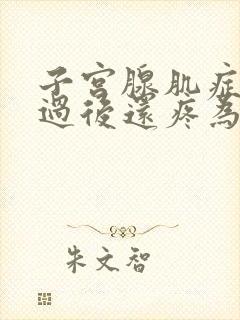 子宮腺肌症
過後還疼為
朱文智